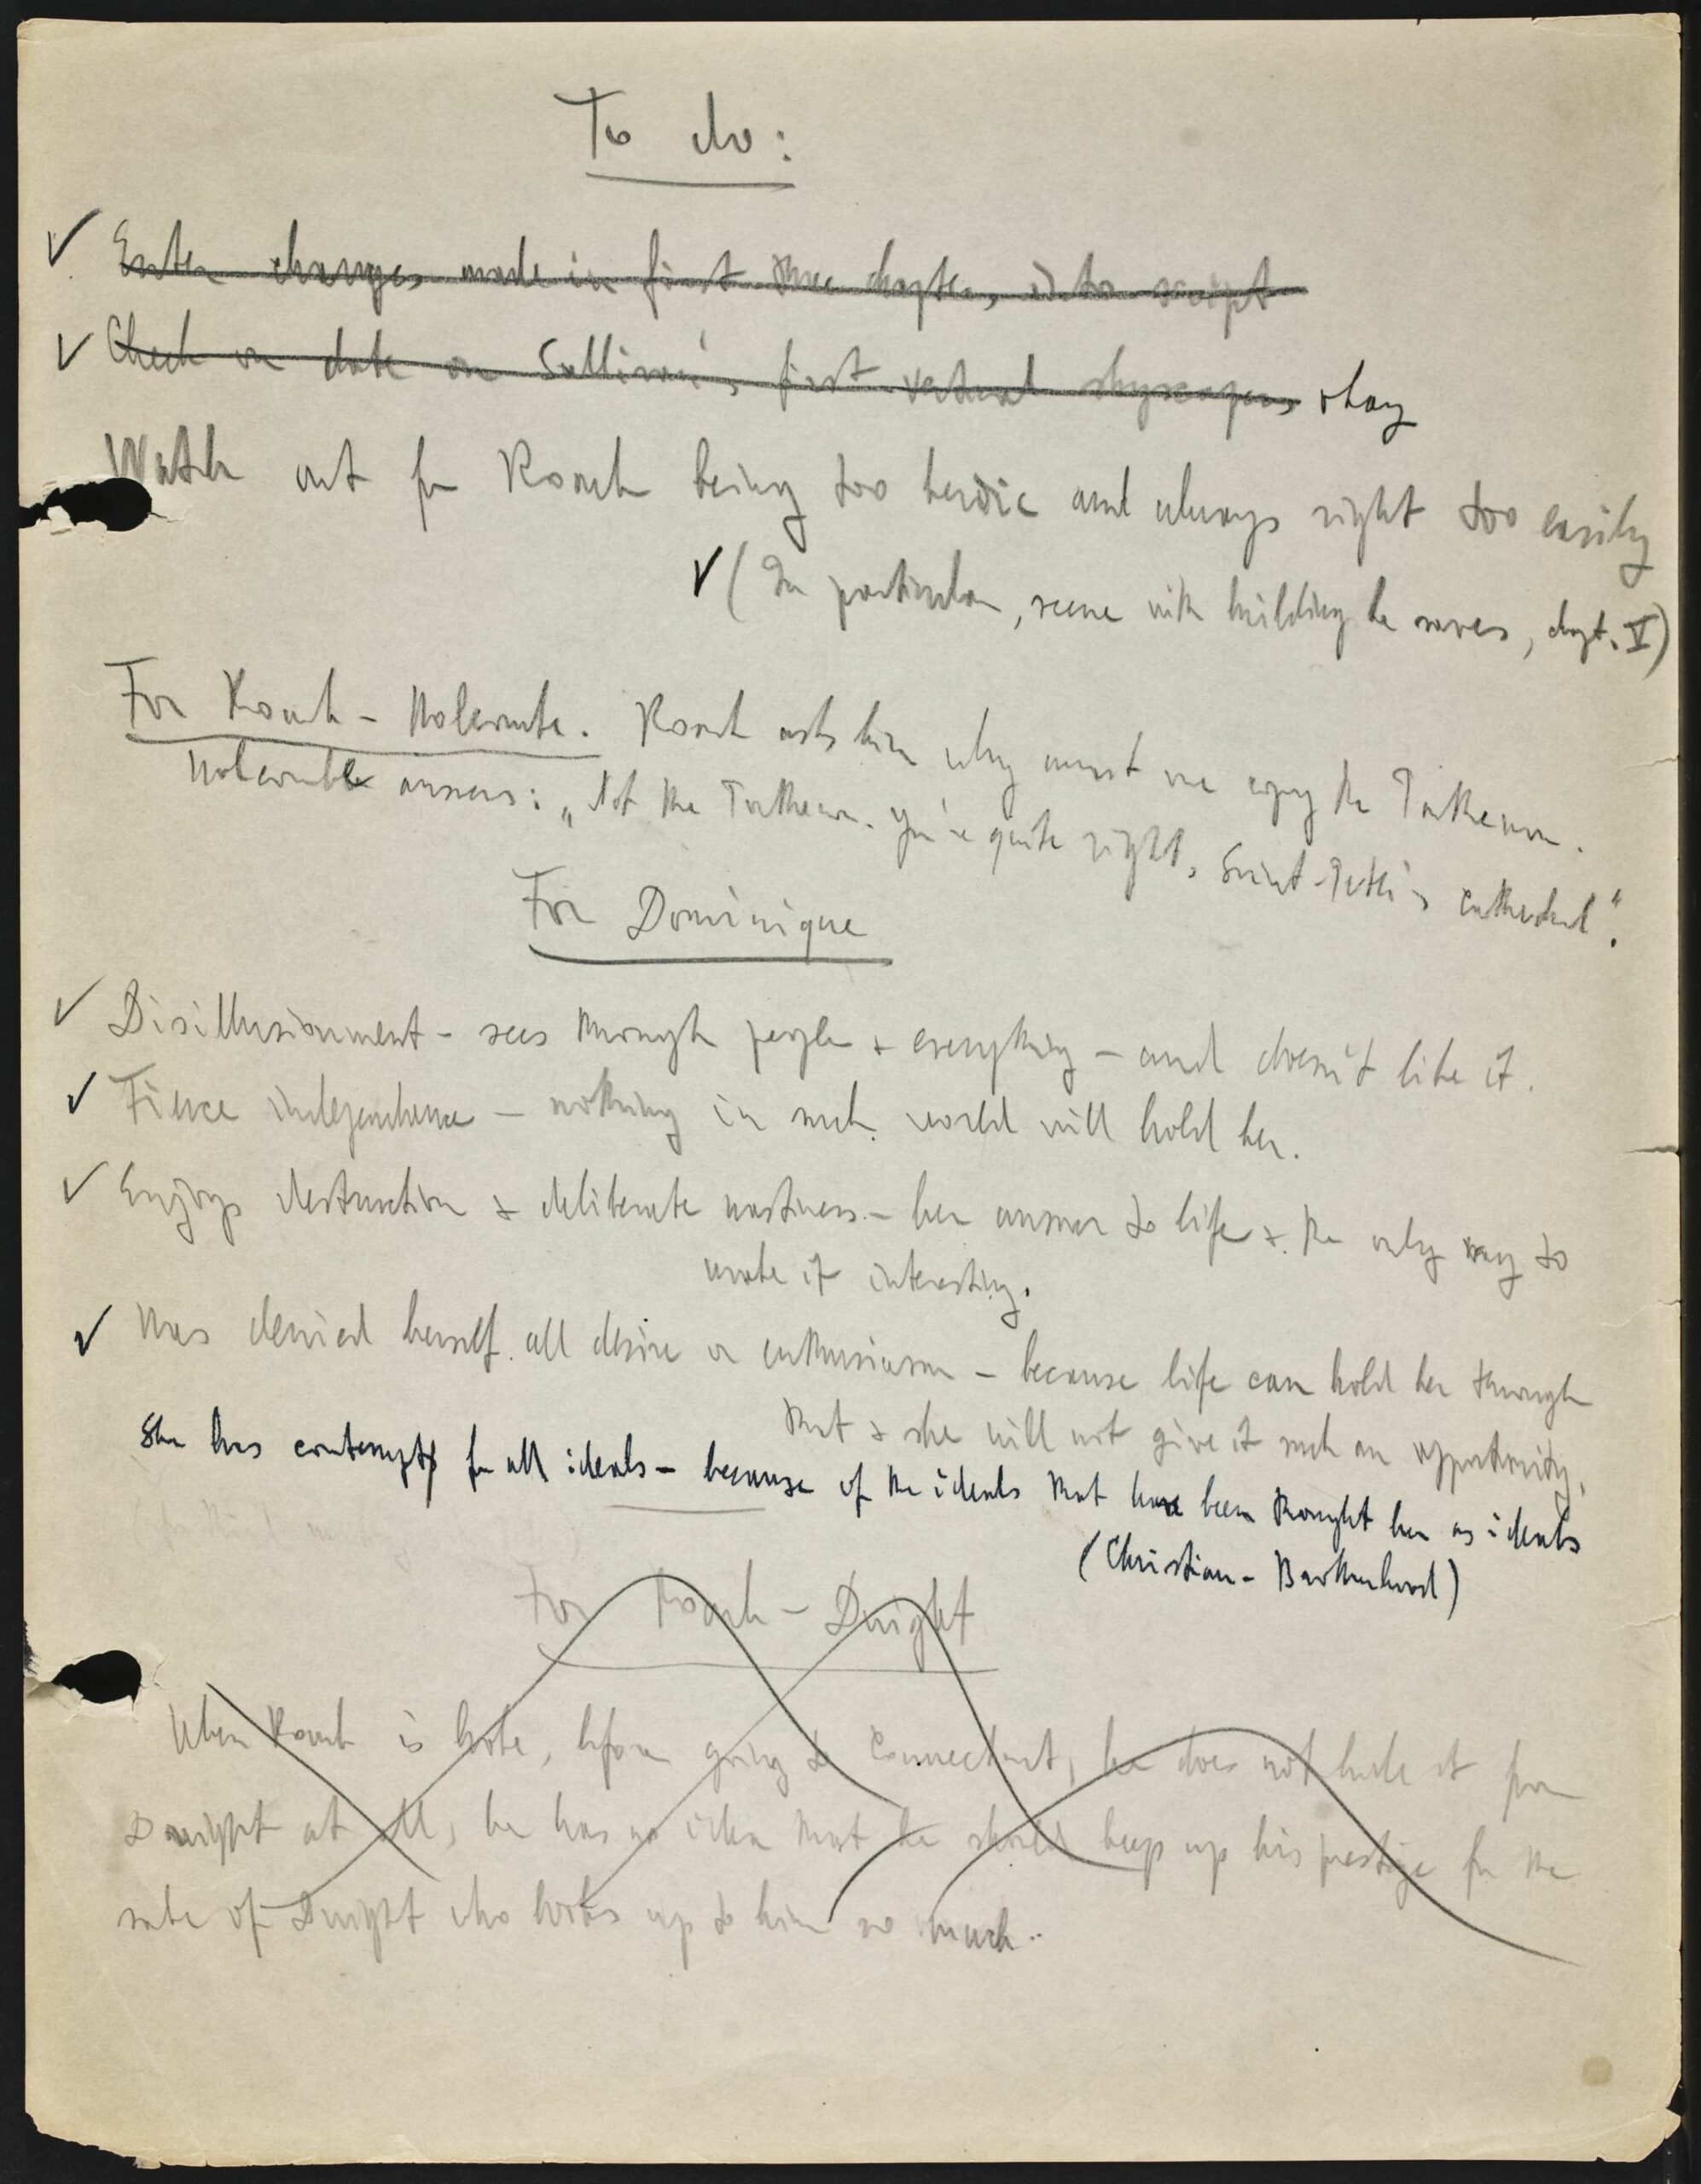 To do:
Enter changes made in first three chapters into script
Check on date on Sullivan's first vertical skyscrapers okay
Watch out for Roark being too heroic and always right too easily
(In particular, scene with building he saves, chpt. V)
For Roark – Holcombe. Roark asks him why must we copy the Parthenon.
Holcombe answers: „Not the Parthenon. You're quite right, Saint-Peter's Cathedral".
For Dominique
Disillusionment – sees through people & everything – and doesn't like it.
Fierce independence – nothing in such world will hold her.
Enjoys destruction & deliberate nastiness – her answer to life & the only way to
make it interesting.
Has denied herself all desire or enthusiasm – because life can hold her through
that & she will not give it such an opportunity.
She has contempt for all ideals – because of the ideals that have been thought her as ideals
(Christian – Brotherhood)
For Roark – Dwight
When Roark is broke, before going to Connecticut, he does not hide it from
Dwight at all, he has no idea that he should keep up his prestige for the
sake of Dwight who looks up to him so much.